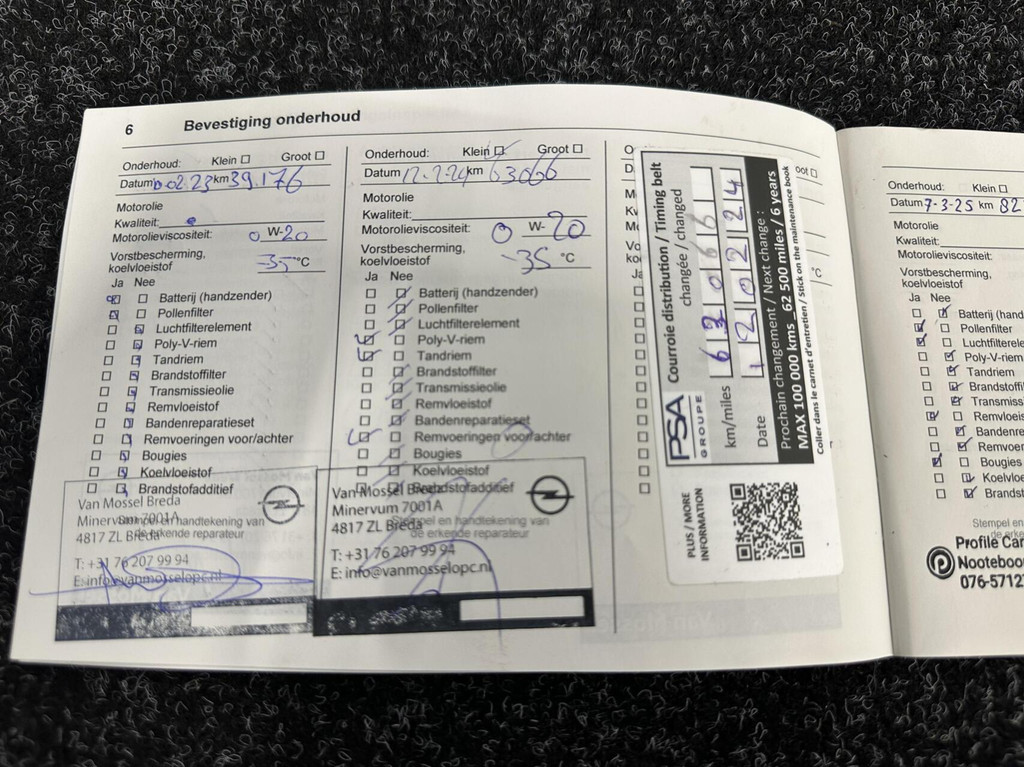 6 Bevestiging onderhoud
Onderhoud: Klein Groot
Datum km 39.176
Motorolie
Kwaliteit:
Motorolieviscositeit: 0 W-20
Vorstbescherming,
koelvloeistof -35 °C
Ja Nee
Batterij (handzender)
Pollenfilter
Luchtfilterelement
Poly-V-riem
Tandriem
Brandstoffilter
Transmissieolie
Remvloeistof
Bandenreparatieset
Remvoeringen voor/achter
Bougies
Koelvloeistof
Brandstofadditief
Van Mossel Breda
Minervum 7001A
4817 ZL Breda
Stempel en handtekening van
de erkende reparateur
T: +31 76 207 99 94
E: info@vanmosselopc.nl
Onderhoud: Klein Groot
Datum 12-2-24 km 63066
Motorolie
Kwaliteit:
Motorolieviscositeit: 0 W-20
Vorstbescherming,
koelvloeistof -35 °C
Ja Nee
Batterij (handzender)
Pollenfilter
Luchtfilterelement
Poly-V-riem
Tandriem
Brandstoffilter
Transmissieolie
Remvloeistof
Bandenreparatieset
Remvoeringen voor/achter
Bougies
Koelvloeistof
Brandstofadditief
Van Mossel Breda
Minervum 7001A
4817 ZL Breda
Stempel en handtekening van
de erkende reparateur
T: +31 76 207 99 94
E: info@vanmosselopc.nl
PSA
GROUPE
Courroie distribution / Timing belt
changée / changed
km/miles 63066
Date 12 02 24
Prochain changement / Next change :
MAX 100 000 kms _62 500 miles / 6 years
Coller dans le carnet d'entretien / Stick on the maintenance book
PLUS / MORE
INFORMATION
Onderhoud: Klein
Datum 7-3-25 km 82
Motorolie
Kwaliteit:
Motorolieviscositeit:
Vorstbescherming,
koelvloeistof
Ja Nee
Batterij (hand
Pollenfilter
Luchtfiltere
Poly-V-riem
Tandriem
Brandstoffi
Transmiss
Remvloeis
Bandenre
Remvoer
Bougies
Koelvloe
Brandst
Stempel en
de erke
Profile Car
Nooteboo
076-5712